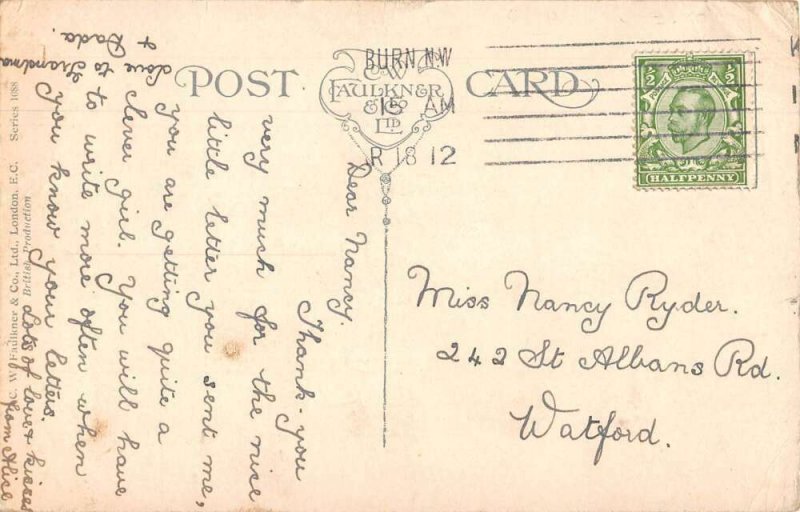 POST CARD
C.W.
FAULKNER
& Co
LTD
BURN N.W
15 AM
R 18 12
½ ½
HALFPENNY
Dear Nancy.
Thank-you
very much for the nice
little letter you sent me,
you are getting quite a
clever girl. You will have
to write more often when
you know your letters.
Lots of love & kisses
from Alice
love to Grandma
& Dada.
Miss Nancy Ryder.
242 St Albans Rd.
Watford.
C. W. Faulkner & Co., Ltd., London, E.C. Series 1088
British Production